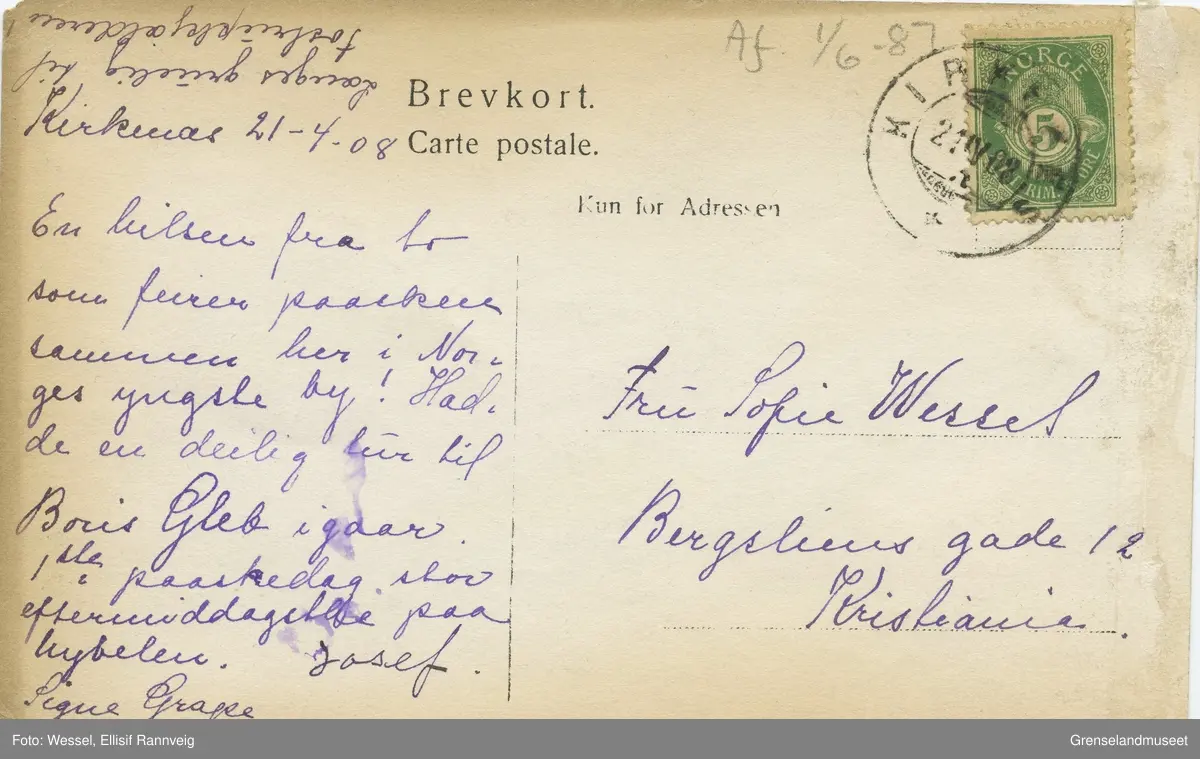 Længes gruelig til
Tostrupkjælderen
Kirkenæs 21-4-08
En hilsen fra to
som feirer paasken
sammen her i Nor-
ges yngste by! Had-
de en deilig tur til
Boris Gleb igaar.
1ste paaskedag stor
eftermiddagsthe paa
hybelen. Josef.
Signe Grape
Brevkort.
Carte postale.
Kun for Adressen
Af. 1/6-87
NORGE
5
KIRKENÆS
Fru Sofie Wessel
Bergsliens gade 12
Kristiania.
Foto: Wessel, Ellisif Rannveig
Grenselandmuseet